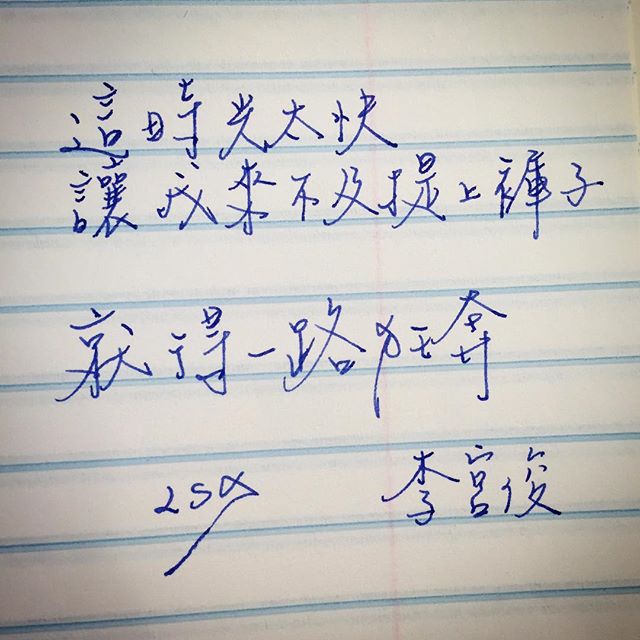 這時光太快
讓我來不及提上褲子
就得一路狂奔
李宮俊